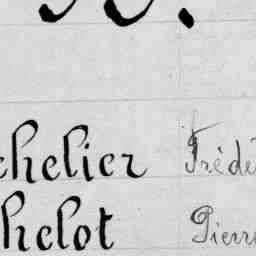 chelier Frédé
helot Pierre